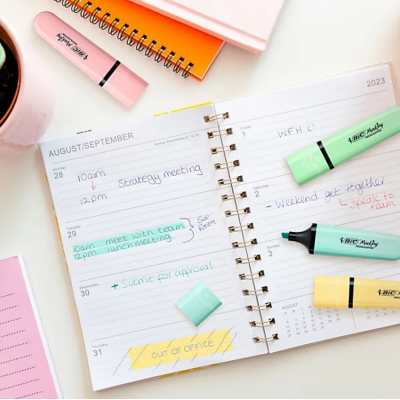 BIC Marking
AUGUST/SEPTEMBER
Monday
28
10am
12pm
Strategy meeting
Tuesday
29
10am meet with team
12pm lunch meeting
Wednesday
30
+ Submit for approval
Thursday
31
OUT OF OFFICE
2023
Friday
1
WFH
BIC Marking
Saturday
2
- Weekend get together
↳ speak to team
BIC Marking
Sunday
3
BIC Marking
AUGUST